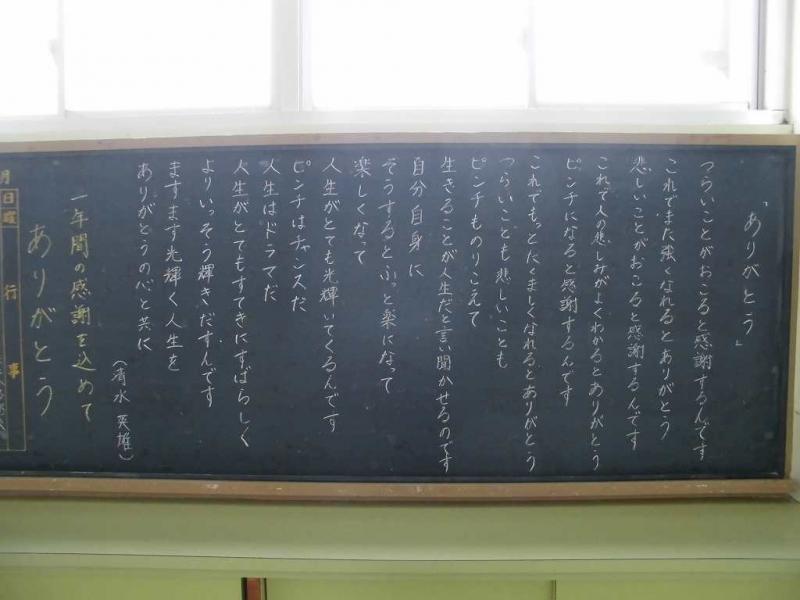 「ありがとう」
つらいことがおこると感謝するんです
これでまた強くなれるとありがとう
悲しいことがおこると感謝するんです
これで人の悲しみがよくわかるとありがとう
ピンチになると感謝するんです
これでもっとたくましくなれるとありがとう
つらいことも悲しいことも
ピンチものりこえて
生きることが人生だと言い聞かせるのです
自分自身に
そうするとふっと楽になって
楽しくなって
人生がとても光輝いてくるんです
ピンチはチャンスだ
人生はドラマだ
人生がとてもすてきにすばらしく
よりいっそう輝きだすんです
ますます光輝く人生を
ありがとうの心と共に
(清水 英雄)
一年間の感謝を込めて
ありがとう
月
日
曜
行事